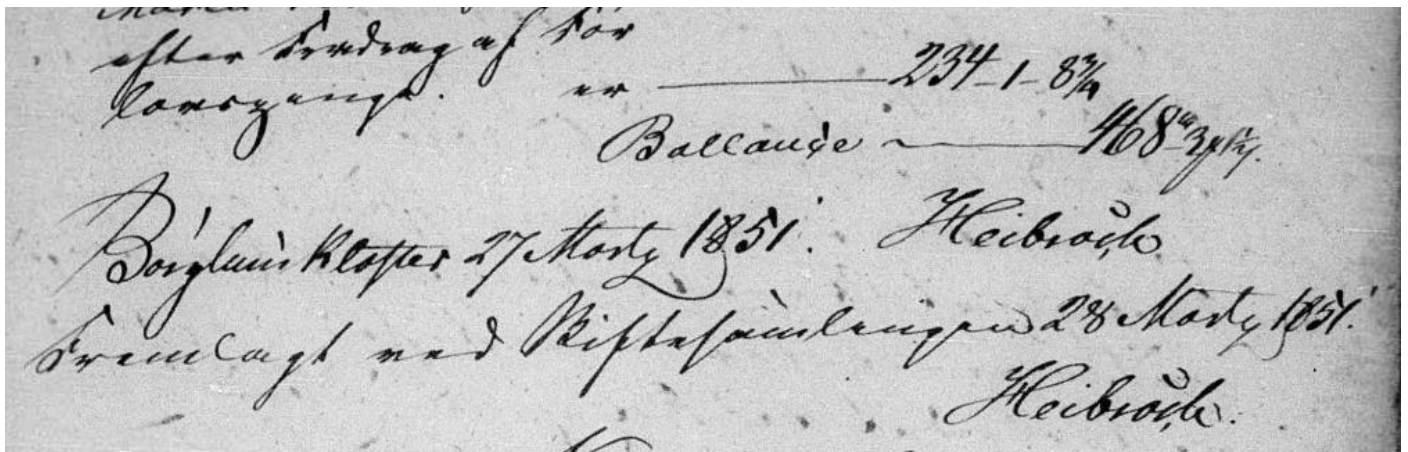 efter Fradrag af For
lovspenge. er — 234 - 1 - 8¾
Ballance — 468
Börglum Kloster 27 Marty 1851. Heibröck
Fremlagt ved Skiftesamlingen 28 Marty 1851.
Heibröck.